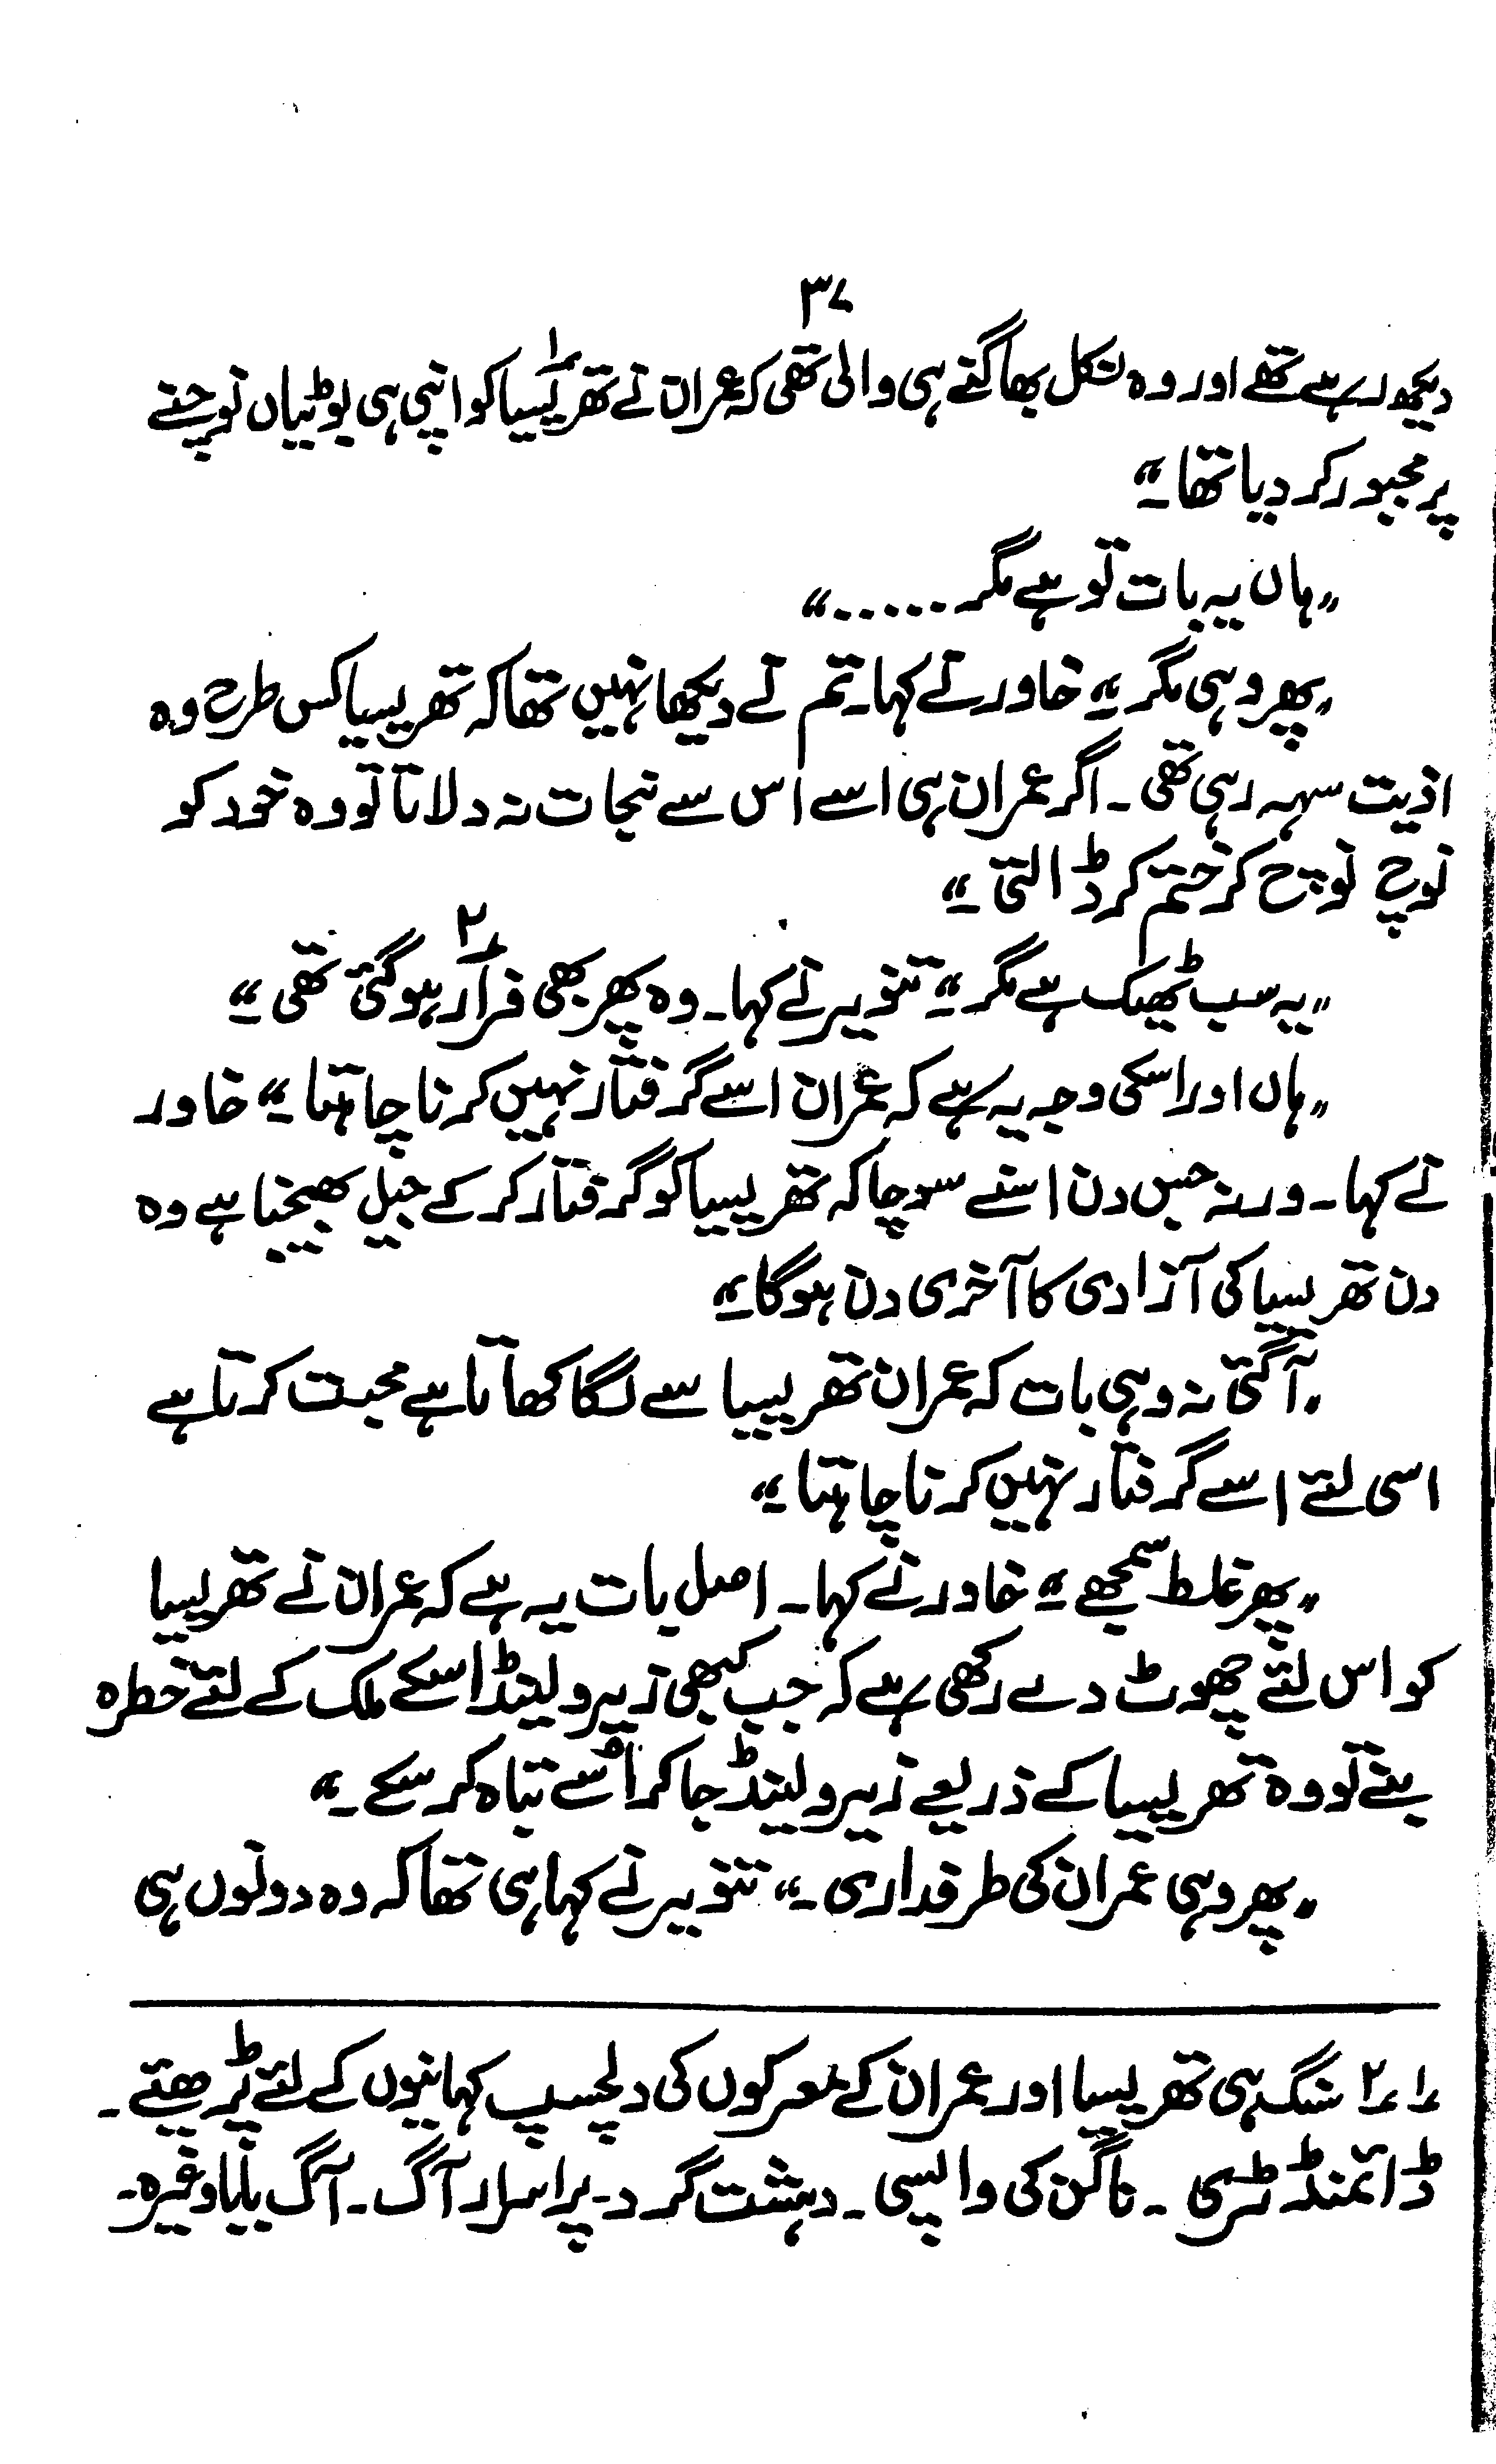 ۳۷
دیکھ رہے تھے اور وہ نکل بھاگنے ہی والی تھی کہ عمران نے تھریسیا۱ کو اپنی ہی بوٹیاں نوچنے
پر مجبور کر دیا تھا۔“
”ہاں یہ بات تو ہے مگر ......“
”پھر وہی مگر۔“ خاور نے کہا۔ تم نے دیکھا نہیں تھا کہ تھریسیا کس طرح وہ
اذیت سہہ رہی تھی۔ اگر عمران ہی اسے اس سے نجات نہ دلاتا تو وہ خود کو
نوچ نوچ کر ختم کر ڈالتی۔“
”یہ سب ٹھیک ہے مگر۔“ تنویر نے کہا۔ وہ پھر بھی فرار۲ ہو گئی تھی۔“
”ہاں اور اسکی وجہ یہ ہے کہ عمران اسے گرفتار نہیں کرنا چاہتا۔“ خاور
نے کہا۔ ورنہ جس دن اسنے سوچا کہ تھریسیا کو گرفتار کر کے جیل بھیجنا ہے وہ
دن تھریسیا کی آزادی کا آخری دن ہوگا۔“
”آگئی نہ وہی بات کہ عمران تھریسیا سے لگا کھاتا ہے محبت کرتا ہے
اسی لئے اسے گرفتار نہیں کرنا چاہتا۔“
”پھر غلط سمجھے۔“ خاور نے کہا۔ اصل بات یہ ہے کہ عمران نے تھریسیا
کو اس لئے چھوٹ دے رکھی ہے کہ جب کبھی زیرو لینڈ اسکے ملک کے لئے خطرہ
بنے تو وہ تھریسیا کے ذریعے زیرو لینڈ جا کر اُسے تباہ کر سکے۔“
”پھر وہی عمران کی طرفداری۔“ تنویر نے کہا ہی تھا کہ وہ دونوں ہی
۱؎ ۲؎ سنگ ہی تھریسیا اور عمران کے معرکوں کی دلچسپ کہانیوں کے لئے پڑھئے۔
ڈائمنڈ ٹری۔ ناگن کی واپسی۔ دہشت گرد۔ پراسرار آگ۔ آگ بابا وغیرہ۔